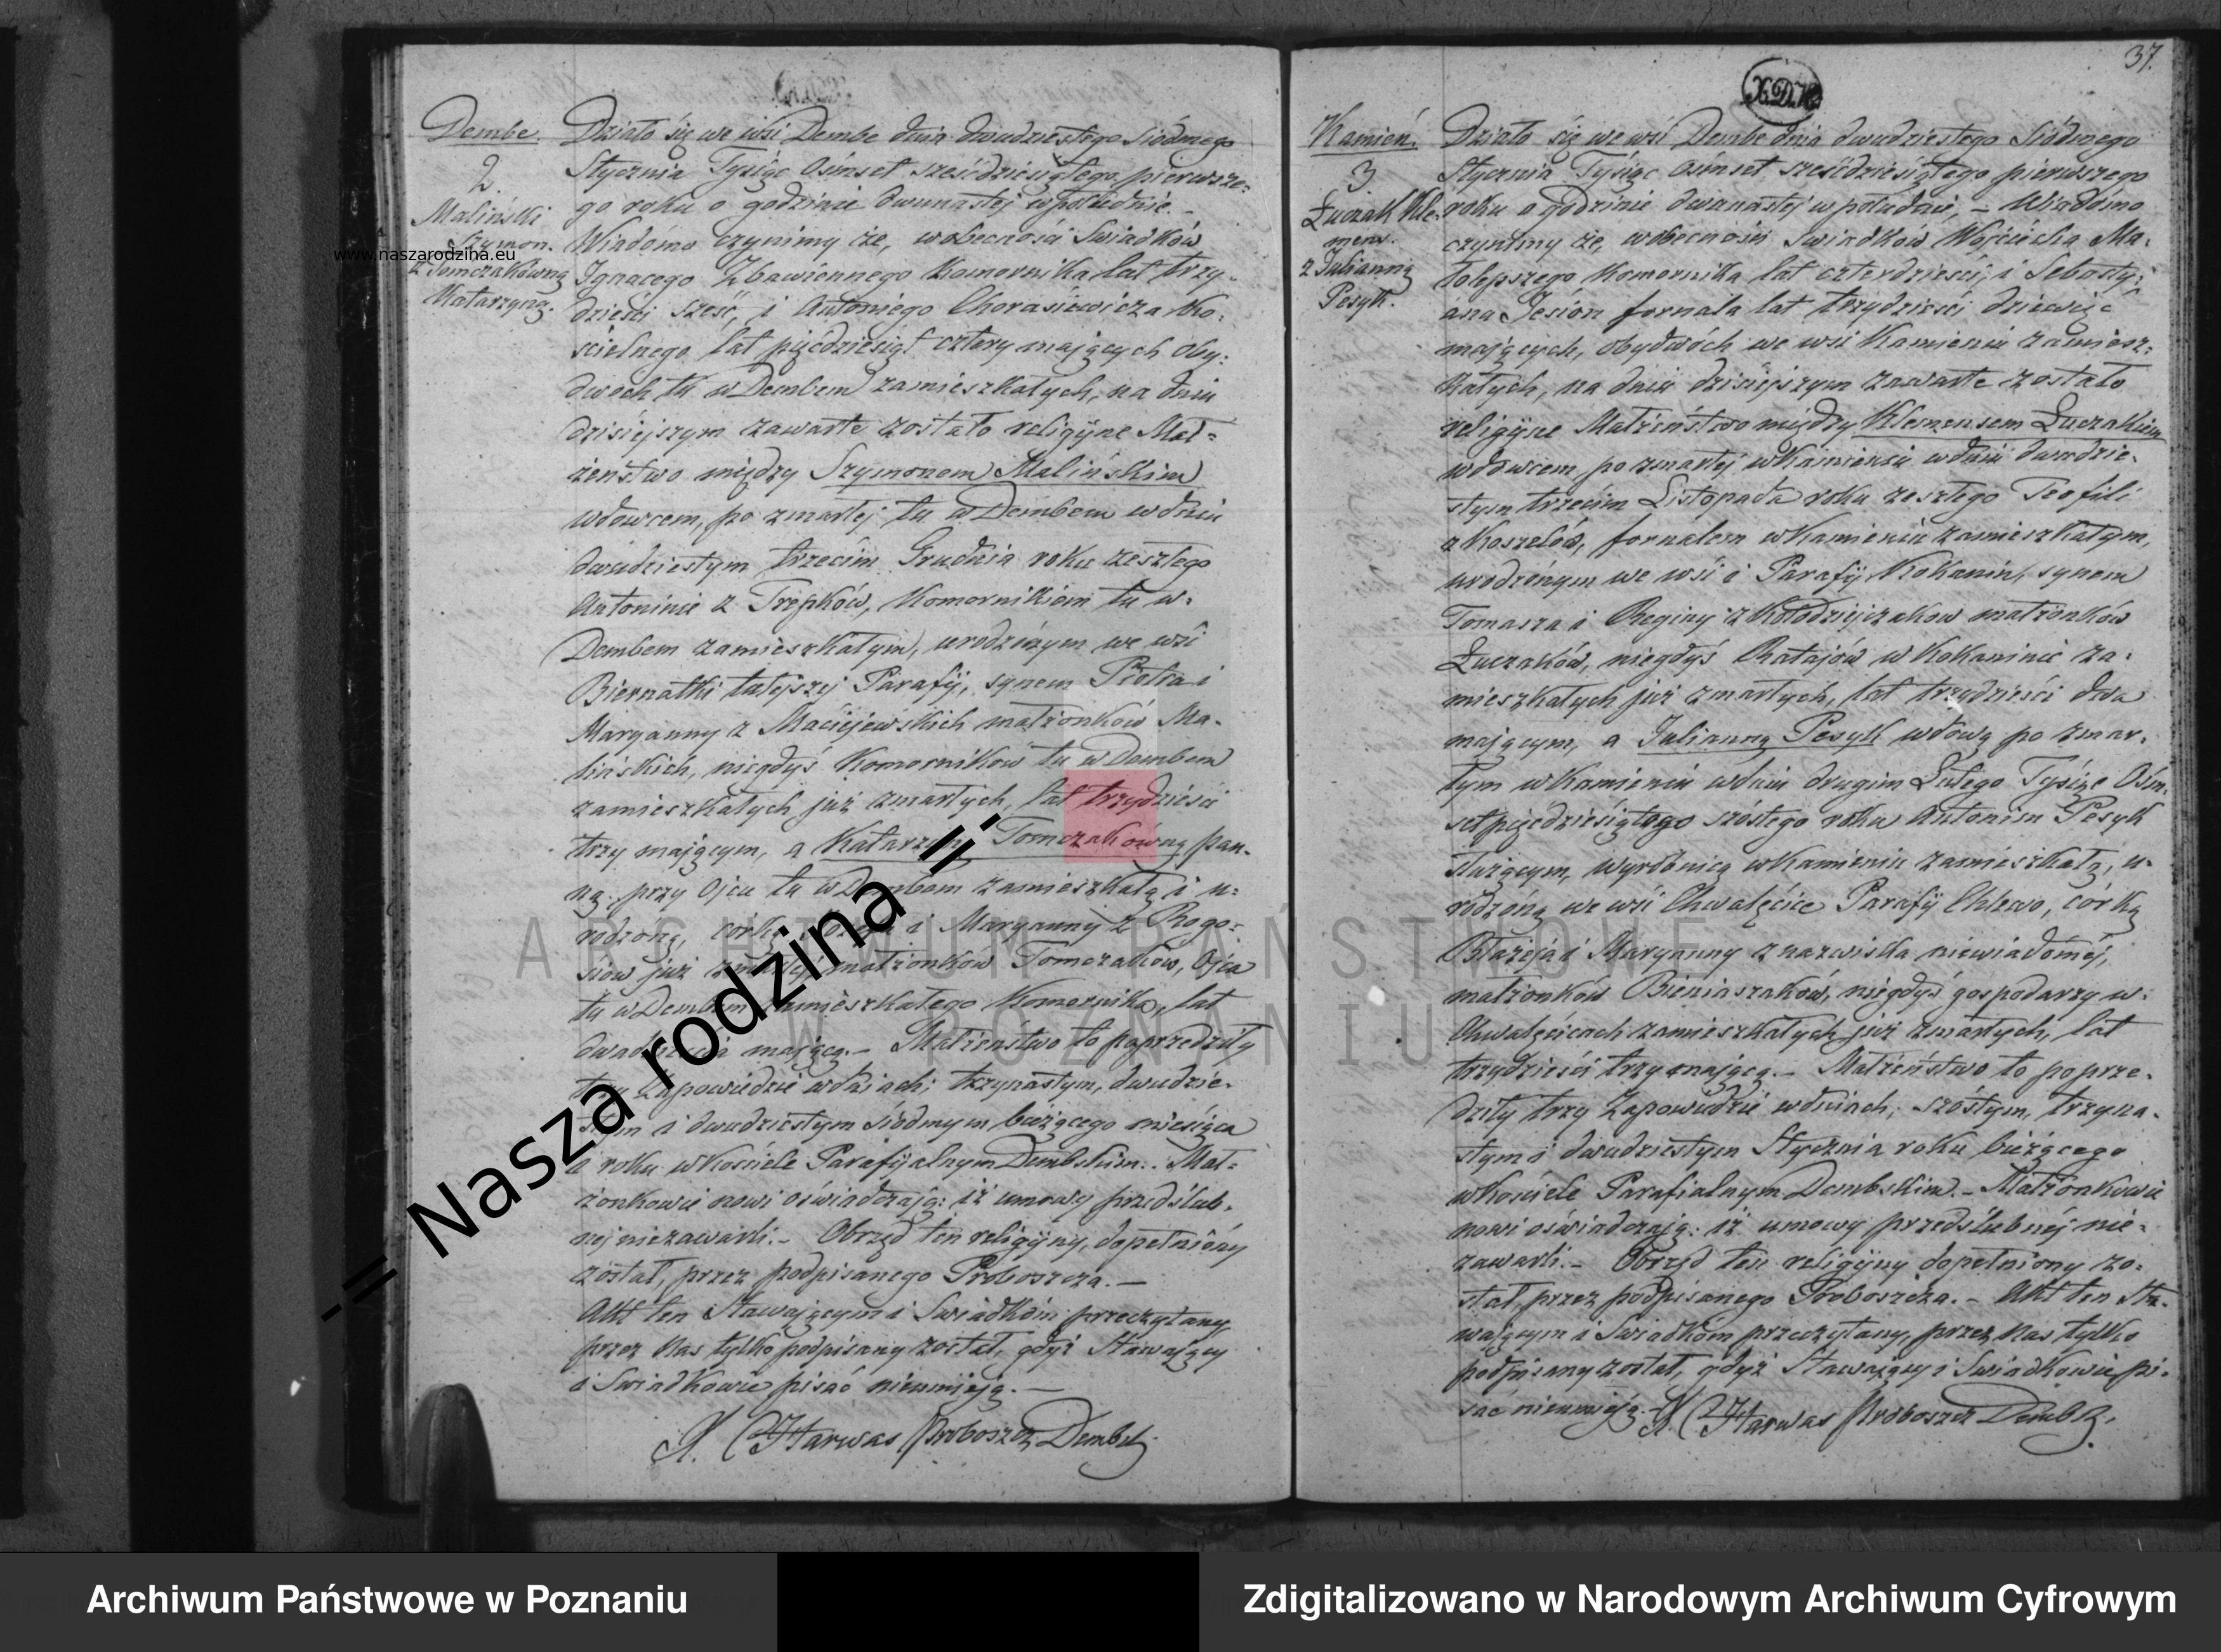 37.
X.D.K
Dembe.
2.
Maliński
Szymon.
z Tomczakówną
Katarzyną.
www.naszarodzina.eu
Działo się we wsi Dembe dnia dwudziestego siódmego
Stycznia Tysiąc Ośmset sześćdziesiątego pierwsze=
go roku o godzinie dwunastej w południe. –
Wiadomo czynimy że, w obecności Swiadków
Ignacego Zbawiennego Komornika lat trzy-
dzieści sześć, i Antoniego Chorasiewicza Ko-
ścielnego lat pięćdziesiąt cztery mających oby-
dwóch tu w Dembem zamieszkałych, na dniu
dzisiejszym zawarte zostało religijne Mał=
żeństwo między Szymonem Malińskim
wdowcem, po zmarłej tu w Dembem w dniu
dwudziestym trzecim Grudnia roku zeszłego
Antoninie z Trepków, Komornikiem tu w-
Dembem zamieszkałym, urodzonym we wsi
Biernatki tutejszej Parafij, synem Piotra i
Maryanny z Maciejewskich małżonków Ma-
lińskich, niegdyś Komorników tu w Dembem
zamieszkałych już zmarłych, lat trzydzieści
trzy mającym, a Katarzyną Tomczakówną pan-
ną, przy Ojcu tu w Dembem zamieszkałą i u-
rodzoną, córką i Maryanny z Rogo=
siów już zmarłej małżonków Tomczaków, Ojca
tu w Dembem zamieszkałego Komornika, lat
dwadzieścia mającą. – Małżeństwo to poprzedziły
trzy Zapowiedzie w dniach; trzynastym, dwudzie-
stym i dwudziestym siódmym bieżącego miesiąca
i roku w Kościele Parafijalnym Dembskim. Mał=
żonkowie nowi oświadczają: iż umowy przedślub-
nej niezawarli. – Obrzęd ten religijny, dopełniony
został, przez podpisanego Proboszcza. –
Akt ten Stawającym i Swiadkóm przeczytany
przez Nas tylko podpisany został, gdyż Stawający
i Swiadkowie pisać nieumieją. –
X. Harwas Proboszcz Dembs.
Kamień.
3.
Łuczak Kle-
mens.
z Julianną
Pesyk.
Działo się we wsi Dembe dnia dwudziestego Siódmego
Stycznia Tysiąc Ośmset sześćdziesiątego pierwszego
roku o godzinie dwunastej w południe, – Wiadomo
czynimy że, w obecności Swiadków Wojciecha Ma-
tolepszego Komornika lat czterdzieści, i Sebasty-
ana Jesion fornala lat trzydzieści dziewięć
mających, obydwóch we wsi Kamieniu zamiesz-
kałych, na dniu dzisiejszym zawarte zostało
religijne Małżeństwo między Klemensem Łuczakiem
wdowcem, po zmarłej w Kamieniu w dniu dwudzie-
stym trzecim Listopada roku zeszłego Teofili
z Koszelów, fornalem w Kamieniu zamieszkałym,
urodzonym we wsi i Parafij Kokanin, synem
Tomasza i Reginy z Kołodziejczaków małżonków
Łuczaków, niegdyś Ratajów w Kokaninie za-
mieszkałych już zmarłych, lat trzydzieści dwa
mającym, a Julianną Pesyk wdową po zmar-
łym w Kamieniu w dniu drugim Lutego Tysiąc Ośm-
set pięćdziesiątego szóstego roku Antonim Pesyk
służącym, wyrobnicą w Kamieniu zamieszkałą, u-
rodzoną we wsi Chwalęcice Parafij Chlewo, córką
Błażeja i Maryanny z nazwiska niewiadomej,
małżonków Bieniaszaków, niegdyś gospodarzy w-
Chwalęcicach zamieszkałych już zmarłych, lat
trzydzieści trzy mającą. – Małżeństwo to poprze-
dziły trzy Zapowiedzie w dniach; szóstym, trzyna-
stym i dwudziestym Stycznia roku bieżącego
w Kościele Parafialnym Dembskim. – Małżonkowie
nowi oświadczają: iż umowy przedślubnej nie-
zawarli. – Obrzęd ten religijny dopełniony zo-
stał, przez podpisanego Proboszcza. – Akt ten Sta-
wającym i Swiadkóm przeczytany, przez Nas tylko
podpisany został, gdyż Stawający i Swiadkowie pi-
sać nieumieją. X. Harwas Proboszcz Dembs.
ARCHIWUM PAŃSTWOWE
W POZNANIU
-= Nasza rodzina =-
Archiwum Państwowe w Poznaniu
Zdigitalizowano w Narodowym Archiwum Cyfrowym